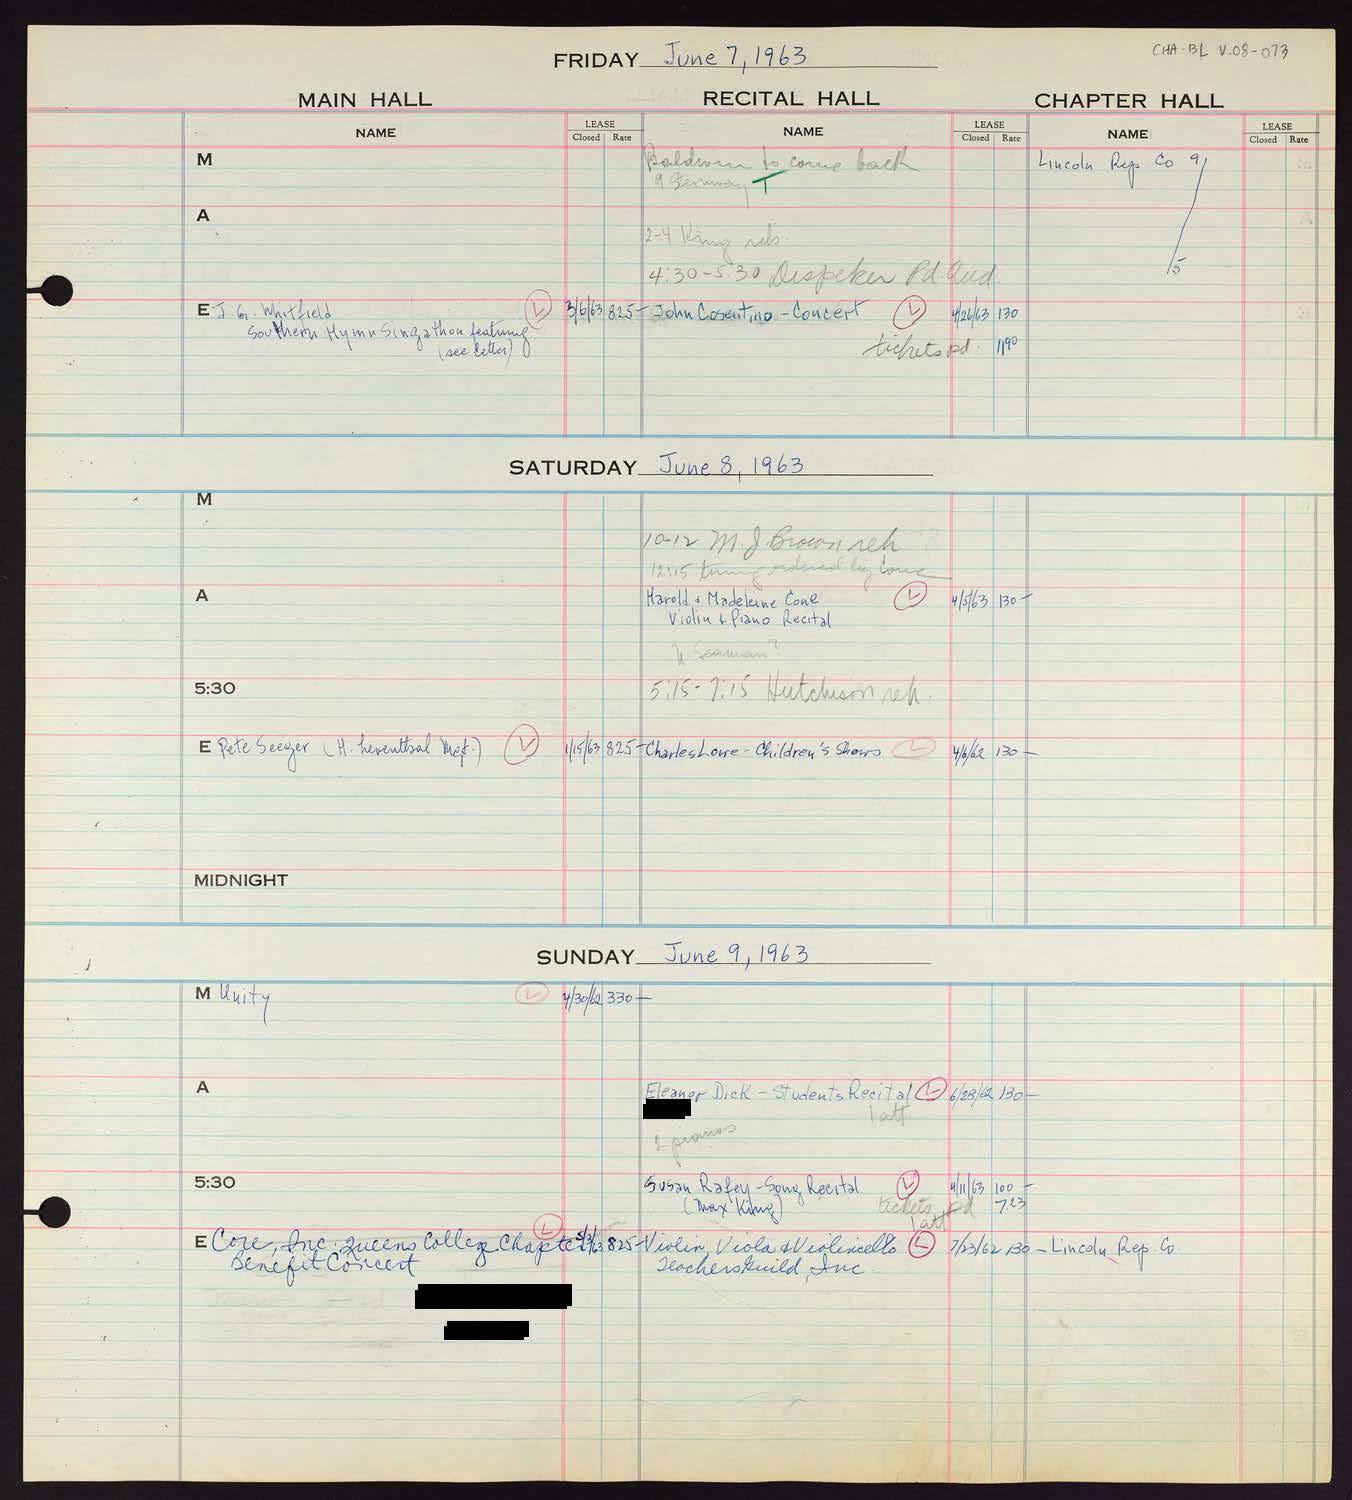 CHA-BL V.08-073
FRIDAY June 7, 1963
MAIN HALL RECITAL HALL CHAPTER HALL
NAME LEASE Closed Rate NAME LEASE Closed Rate NAME LEASE Closed Rate
M Baldwin to come back Lincoln Rep Co 9/
9 Steinway T
A
2-4 King reh.
/5
4:30-5:30 Dispeker Pd. Aud.
E J. G. Whitfield L 3/6/63 825- John Cosentino - Concert L 4/26/63 130
Southern Hymn Singathon featuring
(see letter) tickets pd. 1190
SATURDAY June 8, 1963
M
10-12 M. J. Brown reh
12:15 tuning ordered by Cone
A Harold & Madeleine Cone L 4/5/63 130-
Violin & Piano Recital
Seaman?
5:30 5:15-7:15 Hutchison reh.
E Pete Seeger (H. Leventhal Mgt.) L 1/15/63 825- Charles Lowe - Children's Shows L 4/6/62 130-
MIDNIGHT
SUNDAY June 9, 1963
M Unity L 4/30/62 330-
A Eleanor Dick - Students Recital L 6/28/62 130-
1 att
2 pianos
5:30 Susan Rafey - Song Recital L 4/11/63 100-
(Max King) tickets pd 7.23
1 att
E Core, Inc. Queens College Chapter L 5/3/63 825- Violin, Viola & Violincello L 7/23/62 130- Lincoln Rep. Co
Benefit Concert Teachers Guild, Inc.